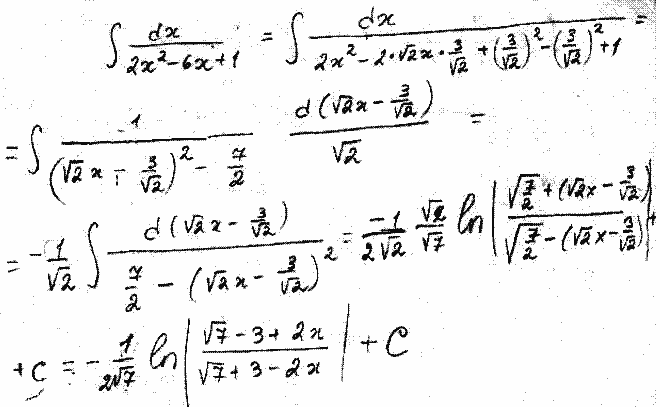 ∫ dx/(2x²-6x+1) = ∫ dx/(2x²-2·√2x·3/√2+(3/√2)²-(3/√2)²+1) =
= ∫ 1/((√2x-3/√2)²-7/2) d(√2x-3/√2)/√2 =
= -1/√2 ∫ d(√2x-3/√2)/(7/2-(√2x-3/√2)²) = -1/(2√2) √2/√7 ln|(√(7/2)+(√2x-3/√2))/(√(7/2)-(√2x-3/√2))| +
+C = -1/(2√7) ln|(√7-3+2x)/(√7+3-2x)| + C